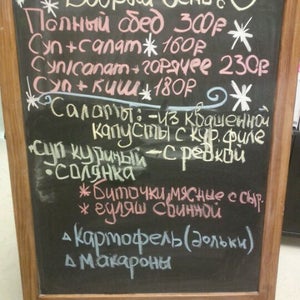 Добрый день!
Полный обед 300р
Суп+салат 160р
Суп/салат+горячее 230р
Суп + киш 180р
Салаты: -из квашенной
капусты с кур.филе
•Суп куриный -с редкой
•солянка
*биточки мясные с сыр.
*гуляш свинной
△картофель (дольки)
△макароны